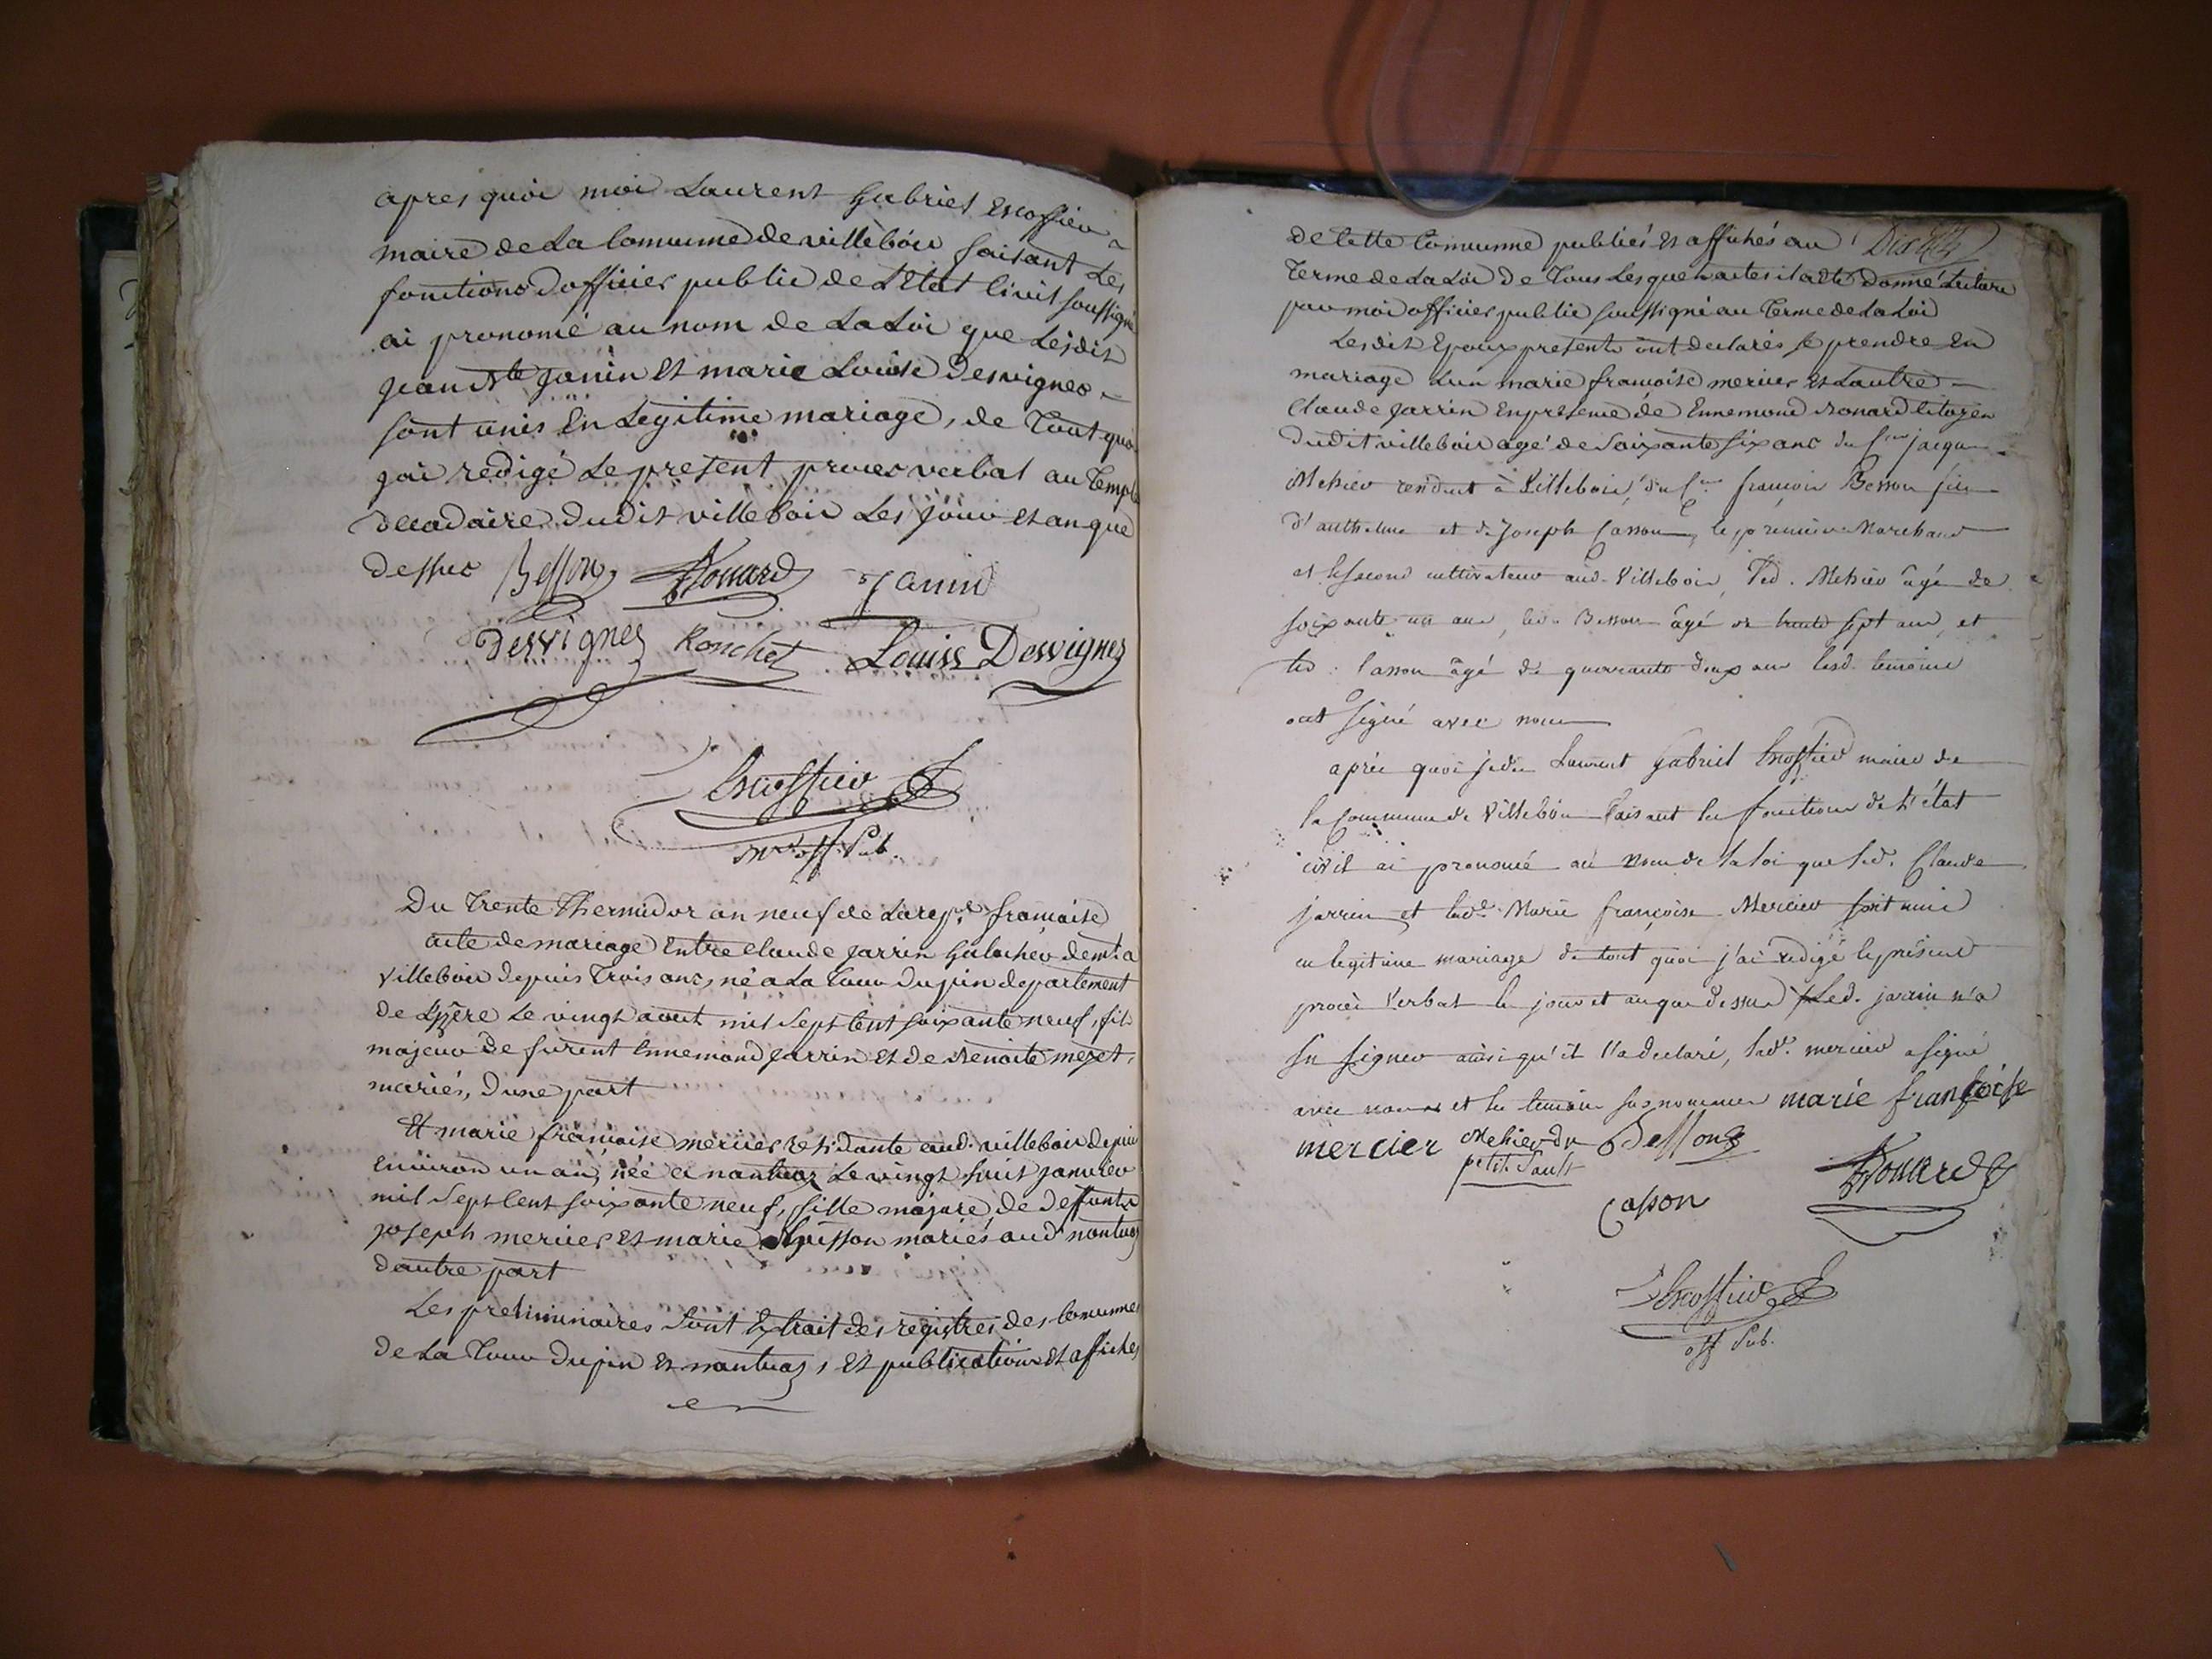 apres quoi moi Laurent Gabriel Escoffier
maire de La Comumne de villeboir faisant Les
fonctions dofficier public de LEtat Civil soussigné
ai prononcé au nom de La Loi que Lesdit
jean Bte Janin Et marie Louise Desvignes
sont unis En Legitime mariage, de Tout quoi
jai redigé Le present proces verbal au Temple
decadaire dudit villeboir Les jour et an que
dessus Besson Bonard Janin
desvignes Ronchet Louiss Desvignes
Escoffier
off. Pub.
Du Trente Thermidor an neuf de La repe. francaise
acte de mariage Entre Claude jarrin Galochér demt. a
villeboir depuis Trois ans, né a La Tour Dupin departement
de Lizere Le vingt aout mil sept Cent soixante neuf, fils
majeur de furent Ennemond jarrin et de Benoite
mariés, dune part
Et marie francoise mercier residante aud. villeboir depuis
Environ un an, née a nantuaz Le vingt huit janvier
mil sept Cent soixante neuf, fille majure de deffunts
joseph mercier et marie mariés aud. nantuaz
dautre part
Les preliminaires sont Extrait des registres des Comumnes
de La Tour Dupin Et nantuaz, Et publications et affiches
de Cette Comumne publiés Et affichés au
Terme de La Loi De Tous Lesquels actes il a été donné Lecture
par moi officier public soussigné au Terme de La Loi
Lesdits Epoux presents ont declarés se prendre En
mariage Lun marie francoise mercier et Lautre
Claude jarrin En presence de Ennemond Bonard Citoyen
dudit villeboir agé de Soixante six ans du Cen jacque
Mehier residant à Villeboir, du Cen françois Besson fils
d'anthelme et de Joseph Casson, le premier Marchand
et le second cultivateur aud. Villeboir, led. Mehier âgé de
soixante un ans, led. Besson âgé de trente sept ans, et
led. Casson âgé de quarante deux ans lesd. temoins
ont signé avec nous
après quoi je dis Laurent Gabriel Escoffier maire de
la Commune de Villeboir faisant les fonctions de l'état
civil ai prononcé au nom de la loi que led. Claude
jarrin et lade. Marie françoise Mercier sont unis
en legitime mariage de tout quoi j'ai redigé le présent
procès Verbal les jour et an que dessus Led. jarrin n'a
su signer ainsi qu'il l'a declaré, lade. mercier a signé
avec nous et les temoins susnommés marie francoise
mercier Mehier du Besson
petit Sault Bonard
Casson
Escoffier
off Pub.